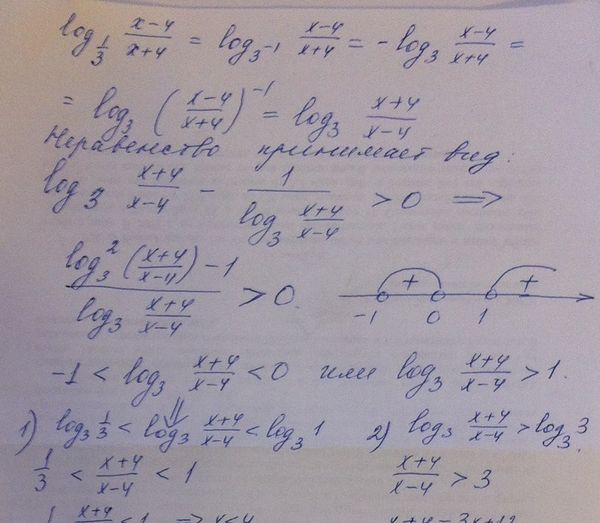 log_{1/3} (x-4)/(x+4) = log_{3^{-1}} (x-4)/(x+4) = -log_3 (x-4)/(x+4) =
= log_3 ((x-4)/(x+4))^{-1} = log_3 (x+4)/(x-4)
Неравенство принимает вид:
log_3 (x+4)/(x-4) - 1/(log_3 (x+4)/(x-4)) > 0 ⟹
(log_3^2 ((x+4)/(x-4)) - 1)/(log_3 (x+4)/(x-4)) > 0.
+ +
-1 0 1
-1 < log_3 (x+4)/(x-4) < 0 или log_3 (x+4)/(x-4) > 1.
⇓
1) log_3 1/3 < log_3 (x+4)/(x-4) < log_3 1
1/3 < (x+4)/(x-4) < 1
(x+4)/(x-4) < 1 ⟹ x<4
2) log_3 (x+4)/(x-4) > log_3 3.
(x+4)/(x-4) > 3